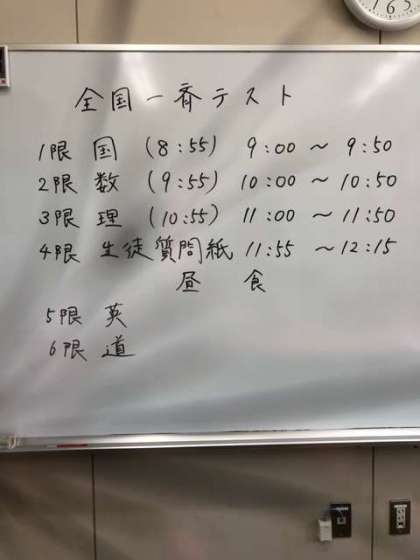 全国一斉テスト
1限 国 (8:55) 9:00 ~ 9:50
2限 数 (9:55) 10:00 ~ 10:50
3限 理 (10:55) 11:00 ~ 11:50
4限 生徒質問紙 11:55 ~ 12:15
昼 食
5限 英
6限 道